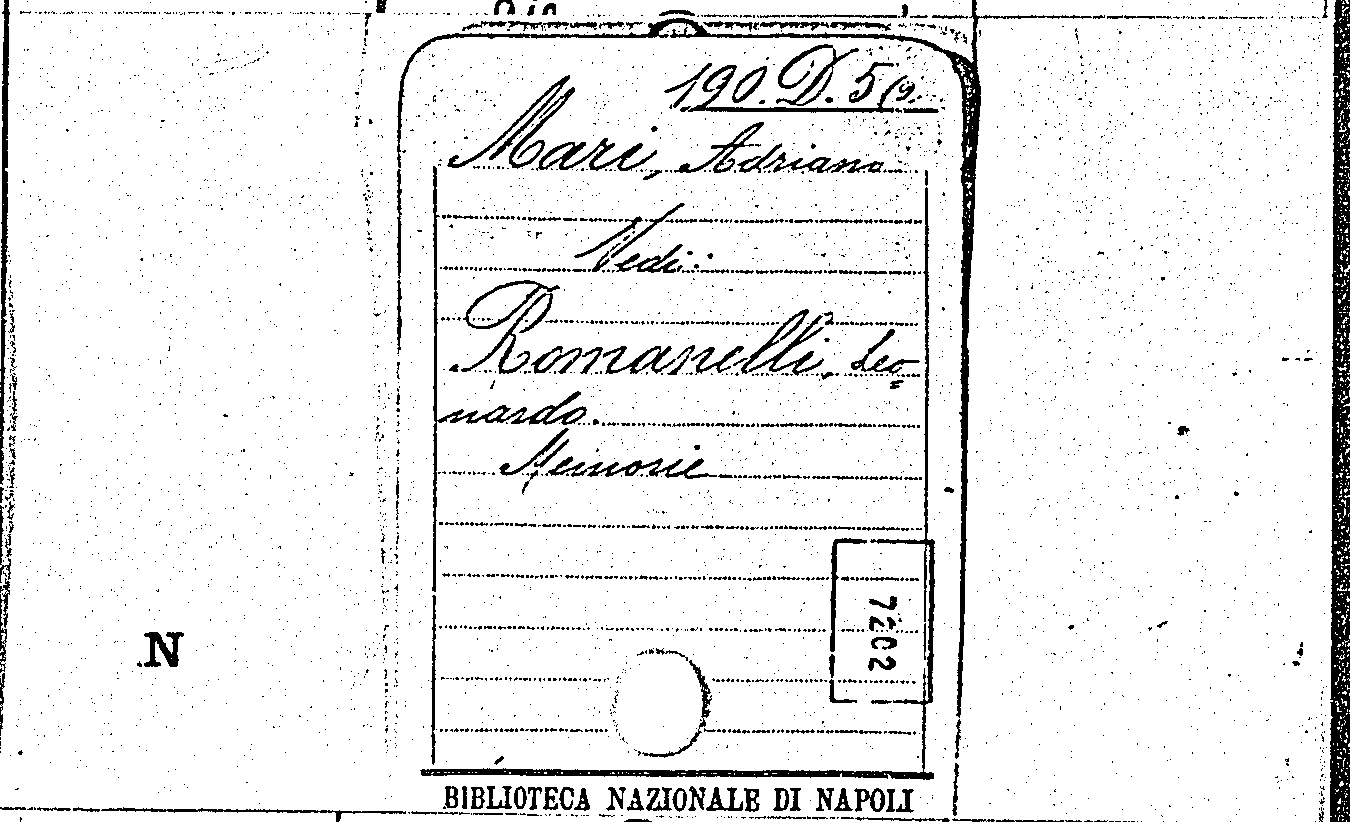 190. D. 5(9.
Mari, Adriano
Vedi:
Romanelli, Leo=
nardo.
Memorie
7202
N
BIBLIOTECA NAZIONALE DI NAPOLI